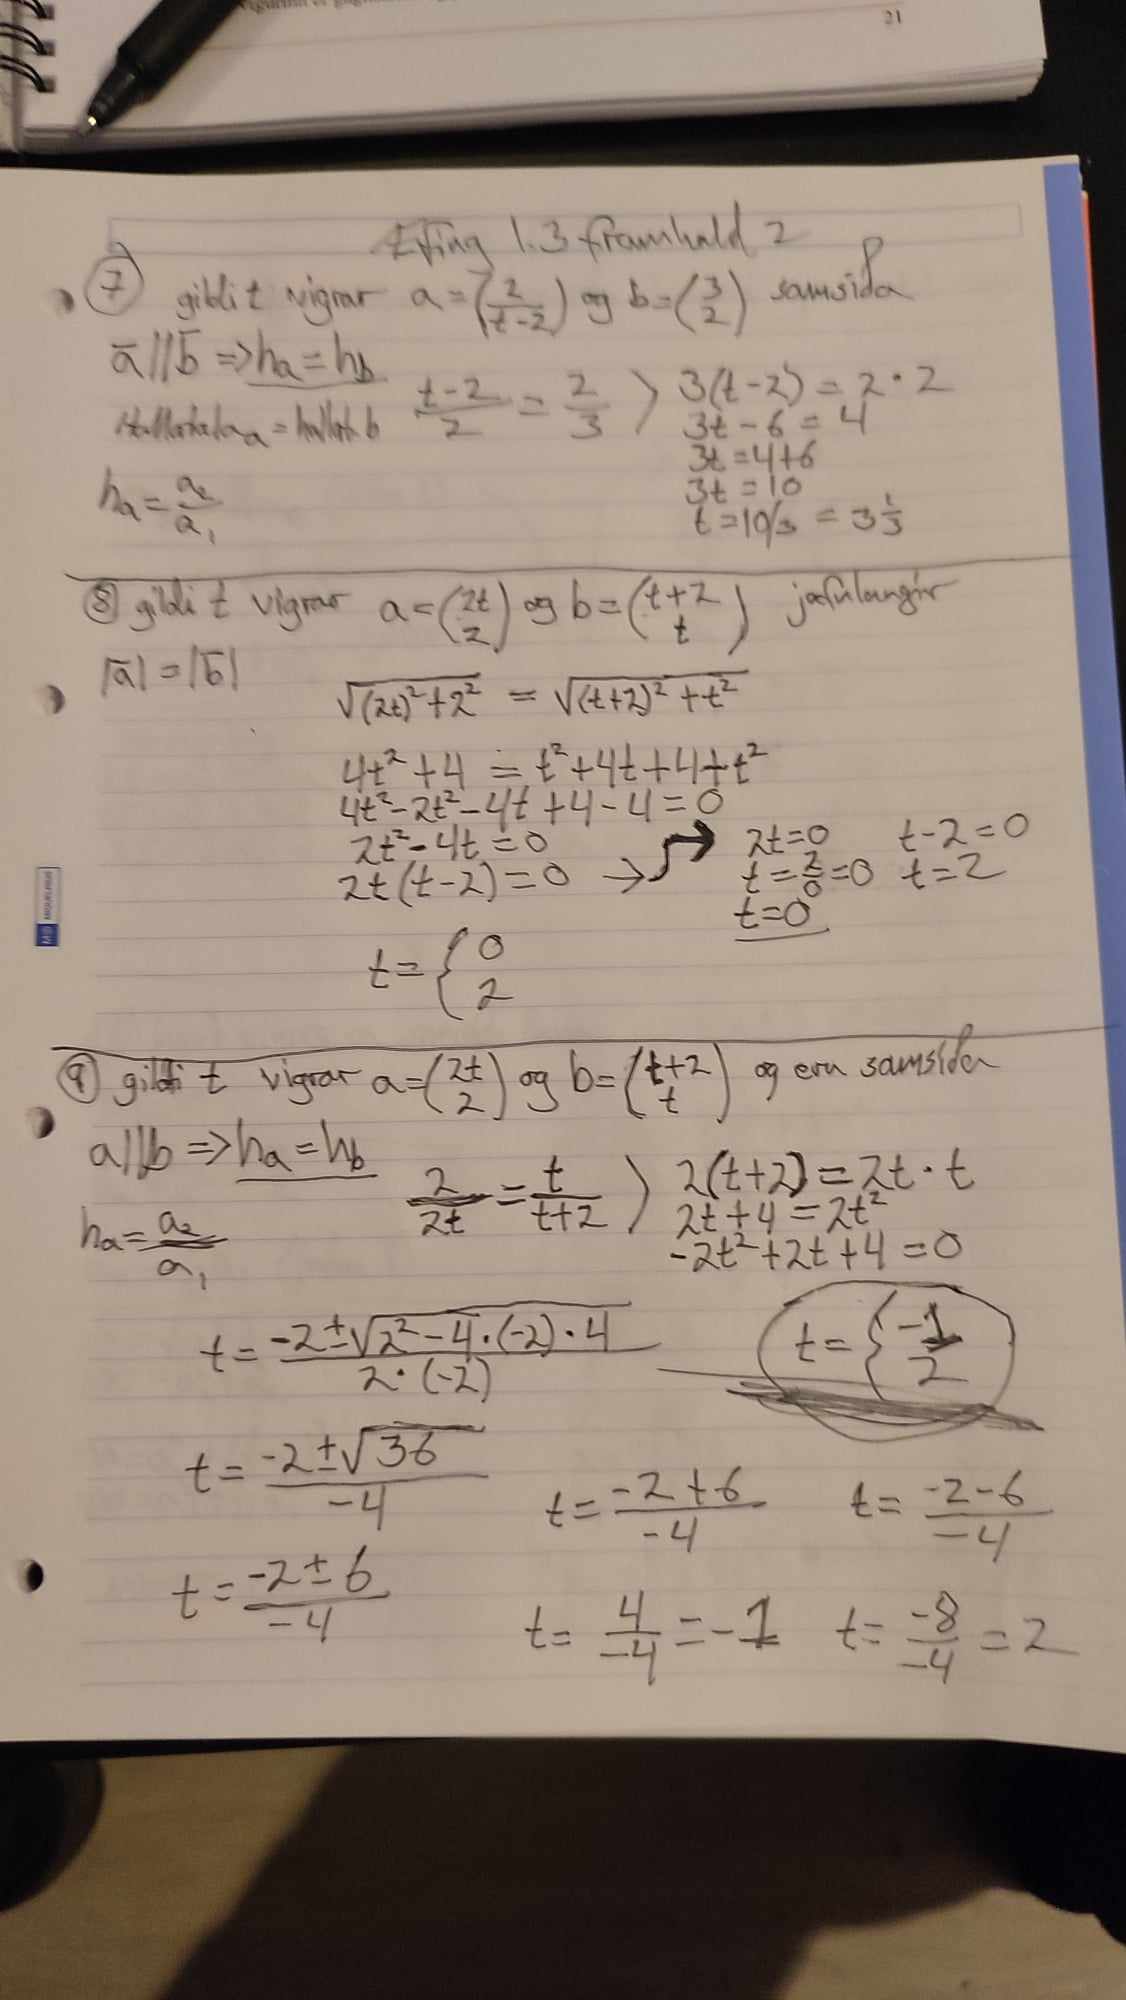 21
Æfing 1.3 framhald 2
7) gildi t vigrar a = (2 / t-2) og b = (3 / 2) samsíða
a̅ // b̅ => ha = hb
Hallatala a = hallat. b
(t-2)/2 = 2/3 > 3(t-2) = 2 · 2
3t - 6 = 4
3t = 4+6
3t = 10
t = 10/3 = 3 1/3
ha = a2/a1
8) gildi t vigrar a = (2t / 2) og b = (t+2 / t) jafnlangir
|a̅| = |b̅|
√((2t)² + 2²) = √((t+2)² + t²)
4t² + 4 = t² + 4t + 4 + t²
4t² - 2t² - 4t + 4 - 4 = 0
2t² - 4t = 0
2t(t-2) = 0 →
2t = 0 t - 2 = 0
t = 2/0 = 0 t = 2
t = 0
t = { 0
2
MB
9) gildi t vigrar a = (2t / 2) og b = (t+2 / t) og eru samsíða
a // b => ha = hb
ha = a2/a1
2/2t = t/(t+2) > 2(t+2) = 2t · t
2t + 4 = 2t²
-2t² + 2t + 4 = 0
t = (-2 ± √(2² - 4 · (-2) · 4)) / (2 · (-2))
t = { -1
2
t = (-2 ± √36) / -4
t = (-2 ± 6) / -4
t = (-2 + 6) / -4 t = (-2 - 6) / -4
t = 4/-4 = -1 t = -8/-4 = 2